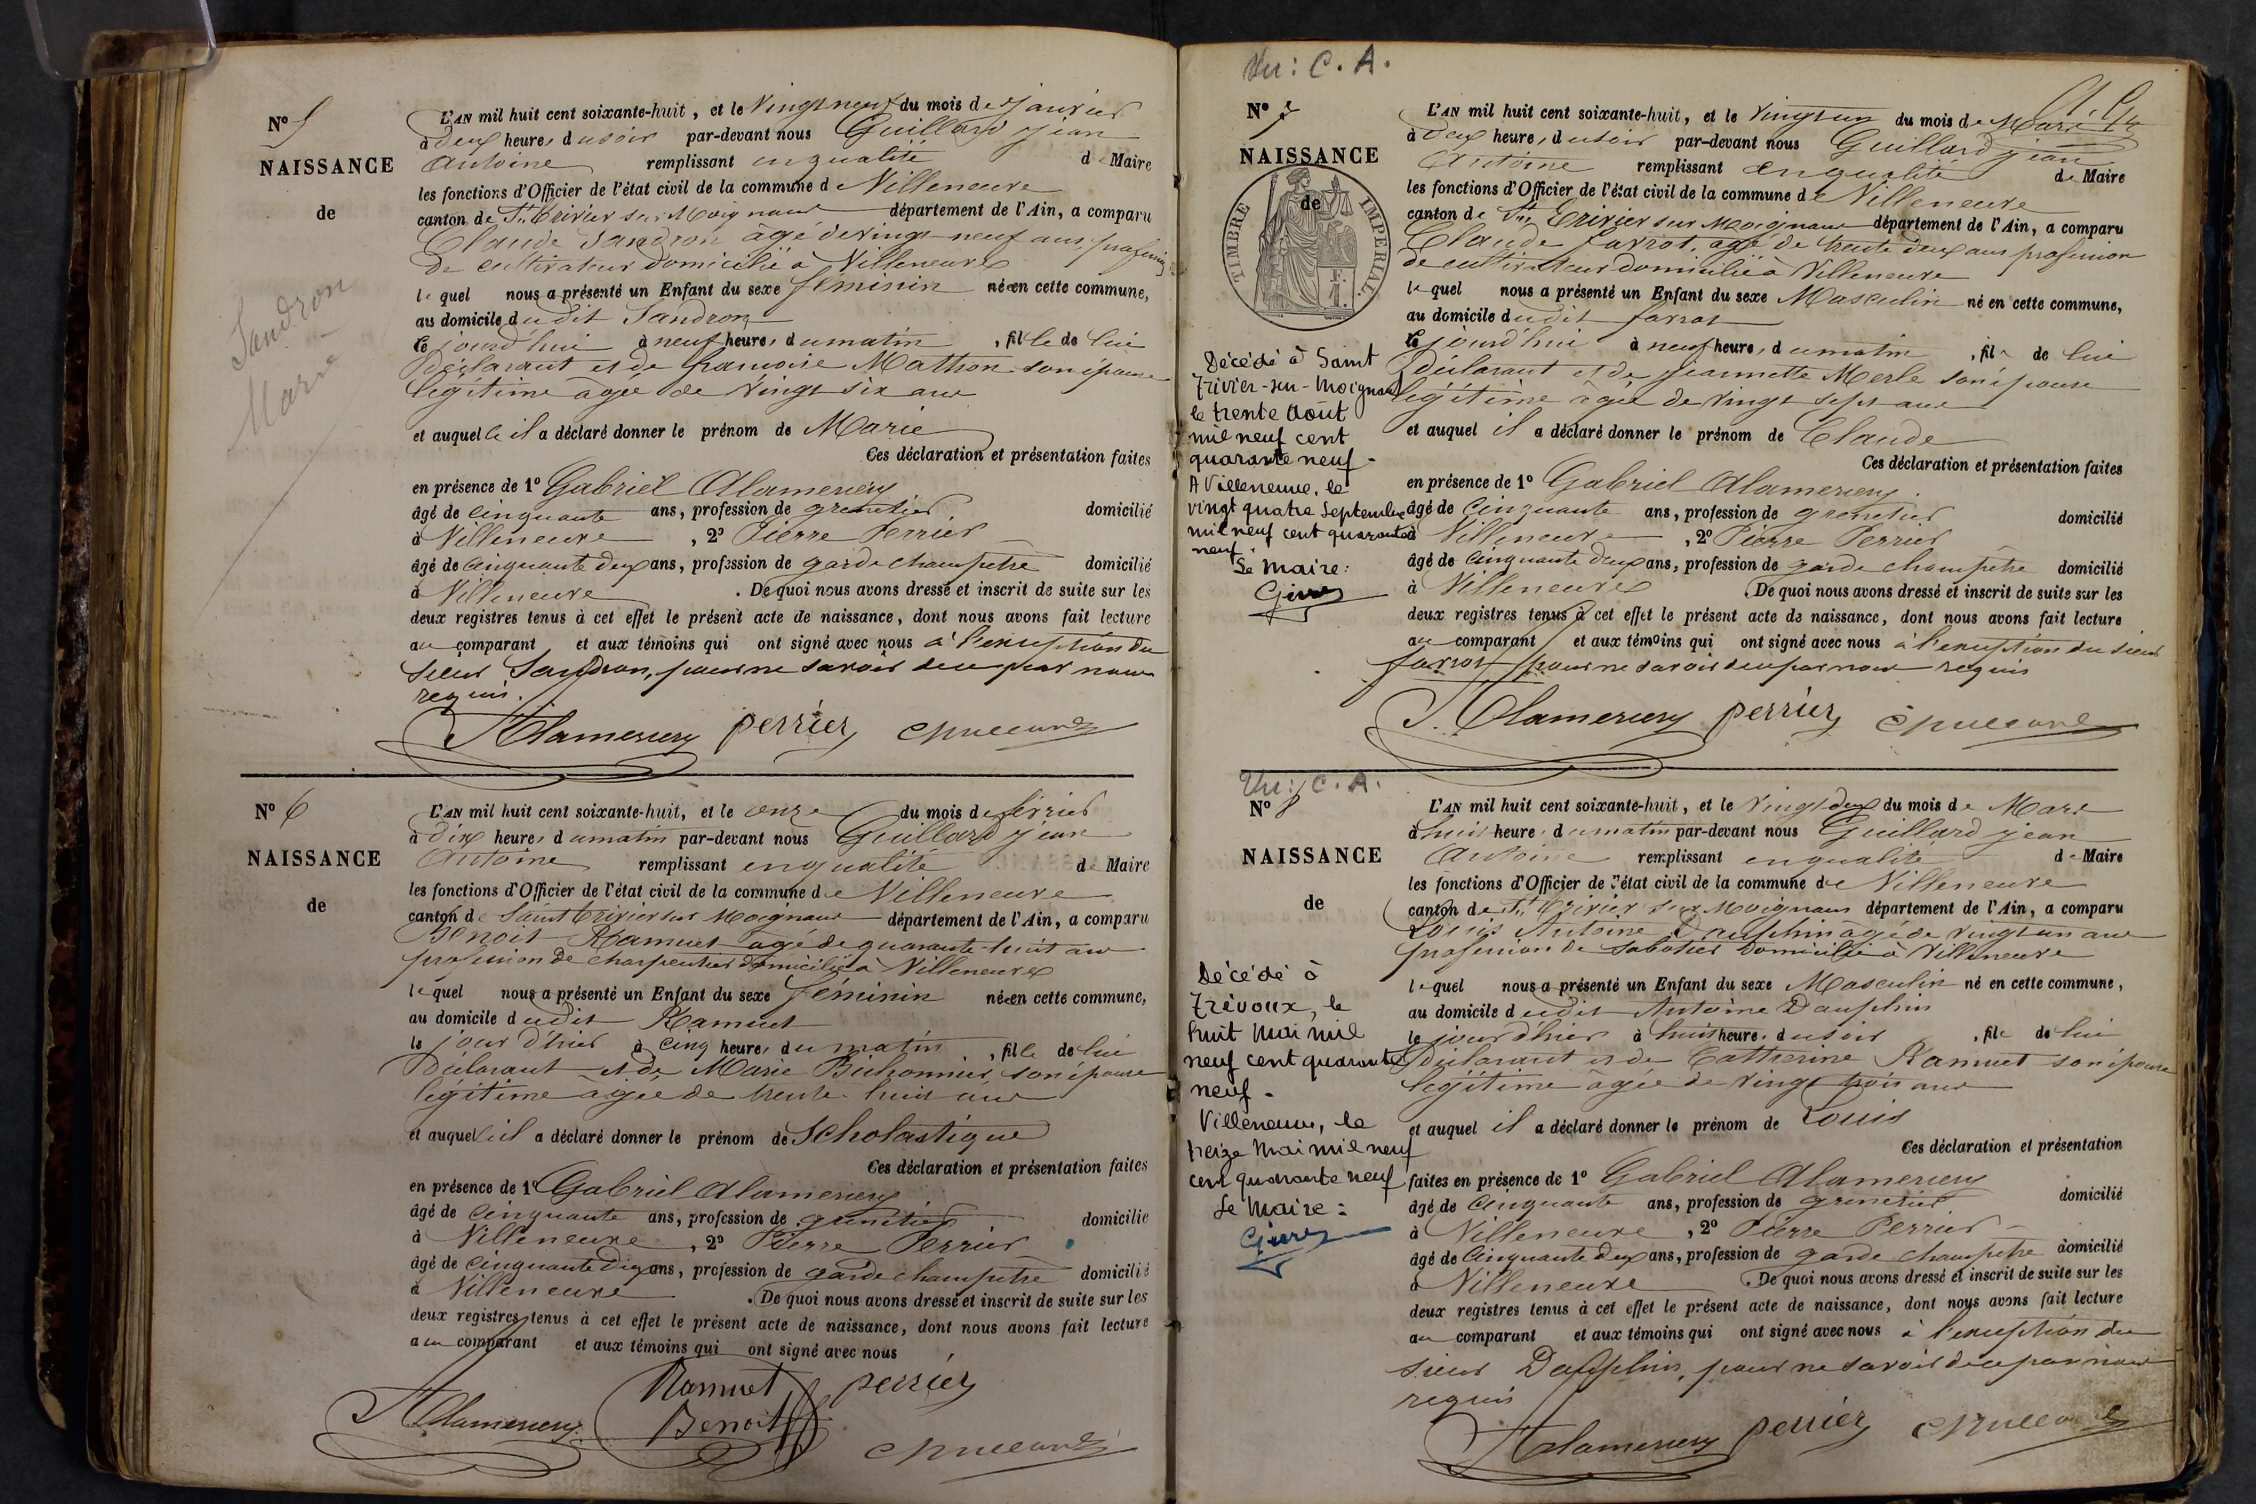 N° 5
NAISSANCE
de
Sandron
Marie
L'AN mil huit cent soixante-huit, et le Vingt neuf du mois de Janvier
à deux heures du soir par-devant nous Guillard Jean
Antoine remplissant en qualité de Maire
les fonctions d'Officier de l'état civil de la commune de Villeneuve
canton de St. Trivier sur Moignans département de l'Ain, a comparu
Claude Sandron âgé de vingt-neuf ans, profession
De cultivateur domicilié à Villeneuve
lequel nous a présenté un Enfant du sexe féminin né en cette commune,
au domicile dudit Sandron
ce jourd'hui à neuf heures du matin, fille de lui
Déclarant et de francoise Mathon son épouse
légitime âgée de vingt six ans
et auquelle il a déclaré donner le prénom de Marie
Ces déclaration et présentation faites
en présence de 1° Gabriel Alamercery
âgé de cinquante ans, profession de grenetier domicilié
à Villeneuve, 2° Pierre Perrier
âgé de cinquante deux ans, profession de garde champetre domicilié
à Villeneuve. De quoi nous avons dressé et inscrit de suite sur les
deux registres tenus à cet effet le présent acte de naissance, dont nous avons fait lecture
au comparant et aux témoins qui ont signé avec nous à l'exception du
sieur Sandron, pour ne savoir de ce par nous
requis.
Alamercery perrier Guillard
N° 6
NAISSANCE
de
L'AN mil huit cent soixante-huit, et le onze du mois de février
à dix heures du matin par-devant nous Guillard Jean
Antoine remplissant en qualité de Maire
les fonctions d'Officier de l'état civil de la commune de Villeneuve
canton de Saint trivier sur Moignans département de l'Ain, a comparu
Benoit Ramuet âgé de quarante-huit ans
profession de charpentier domicilié à Villeneuve
lequel nous a présenté un Enfant du sexe féminin né en cette commune,
au domicile dudit Ramuet
le jour d'hier à cinq heures du matin, fille de lui
Déclarant et de Marie Bichonnier, son épouse
légitime âgée de trente-huit ans
et auquelle il a déclaré donner le prénom de Scholastique
Ces déclaration et présentation faites
en présence de 1° Gabriel Alamercery
âgé de cinquante ans, profession de grenetier domicilié
à Villeneuve, 2° Pierre Perrier
âgé de cinquante deux ans, profession de garde champetre domicilié
à Villeneuve. De quoi nous avons dressé et inscrit de suite sur les
deux registres tenus à cet effet le présent acte de naissance, dont nous avons fait lecture
au comparant et aux témoins qui ont signé avec nous
Ramuet perrier
Alamercery Benoit Guillard
Vu: C. A.
N° 7
NAISSANCE
de
TIMBRE IMPERIAL.
Décédé à Saint
Trivier-sur-Moignans
le trente Août
mil neuf cent
quarante neuf.
A Villeneuve, le
vingt quatre Septembre
mil neuf cent quarante
neuf.
Le Maire:
L'AN mil huit cent soixante-huit, et le vingt un du mois de Mars
à deux heures du soir par-devant nous Guillard Jean
Antoine remplissant en qualité de Maire
les fonctions d'Officier de l'état civil de la commune de Villeneuve
canton de St. Trivier sur Moignans département de l'Ain, a comparu
Claude farrot, âgé de trente deux ans profession
de cultivateur domicilié à Villeneuve
lequel nous a présenté un Enfant du sexe Masculin né en cette commune,
au domicile dudit farrot
ce jourd'hui à neuf heures du matin, fils de lui
Déclarant et de Jeannette Merle son épouse
légitime âgée de vingt sept ans
et auquel il a déclaré donner le prénom de Claude
Ces déclaration et présentation faites
en présence de 1° Gabriel Alamercery
âgé de cinquante ans, profession de grenetier domicilié
à Villeneuve, 2° Pierre Perrier
âgé de cinquante deux ans, profession de garde champetre domicilié
à Villeneuve. De quoi nous avons dressé et inscrit de suite sur les
deux registres tenus à cet effet le présent acte de naissance, dont nous avons fait lecture
au comparant et aux témoins qui ont signé avec nous à l'exception du sieur
farrot pour ne savoir de ce par nous requis
Alamercery perrier Guillard
Vu: C. A.
N° 8
NAISSANCE
de
Décédé à
Trévoux, le
huit Mai mil
neuf cent quarante
neuf.
Villeneuve, le
treize Mai mil neuf
cent quarante neuf
Le Maire:
L'AN mil huit cent soixante-huit, et le vingt deux du mois de Mars
à huit heures du matin par-devant nous Guillard Jean
Antoine remplissant en qualité de Maire
les fonctions d'Officier de l'état civil de la commune de Villeneuve
canton de St. Trivier sur Moignans département de l'Ain, a comparu
Louis Antoine Dauphin âgé de vingt un ans
profession de sabotier domicilié à Villeneuve
lequel nous a présenté un Enfant du sexe Masculin né en cette commune,
au domicile dudit Antoine Dauphin
le jour d'hier à huit heures du soir, fils de lui
Déclarant et de Catherine Ramuet son épouse
légitime âgée de vingt trois ans
et auquel il a déclaré donner le prénom de Louis
Ces déclaration et présentation
faites en présence de 1° Gabriel Alamercery
âgé de cinquante ans, profession de grenetier domicilié
à Villeneuve, 2° Pierre Perrier
âgé de cinquante deux ans, profession de garde champetre domicilié
à Villeneuve. De quoi nous avons dressé et inscrit de suite sur les
deux registres tenus à cet effet le présent acte de naissance, dont nous avons fait lecture
au comparant et aux témoins qui ont signé avec nous à l'exception du
sieur Dauphin, pour ne savoir de ce par nous
requis
Alamercery perrier Guillard